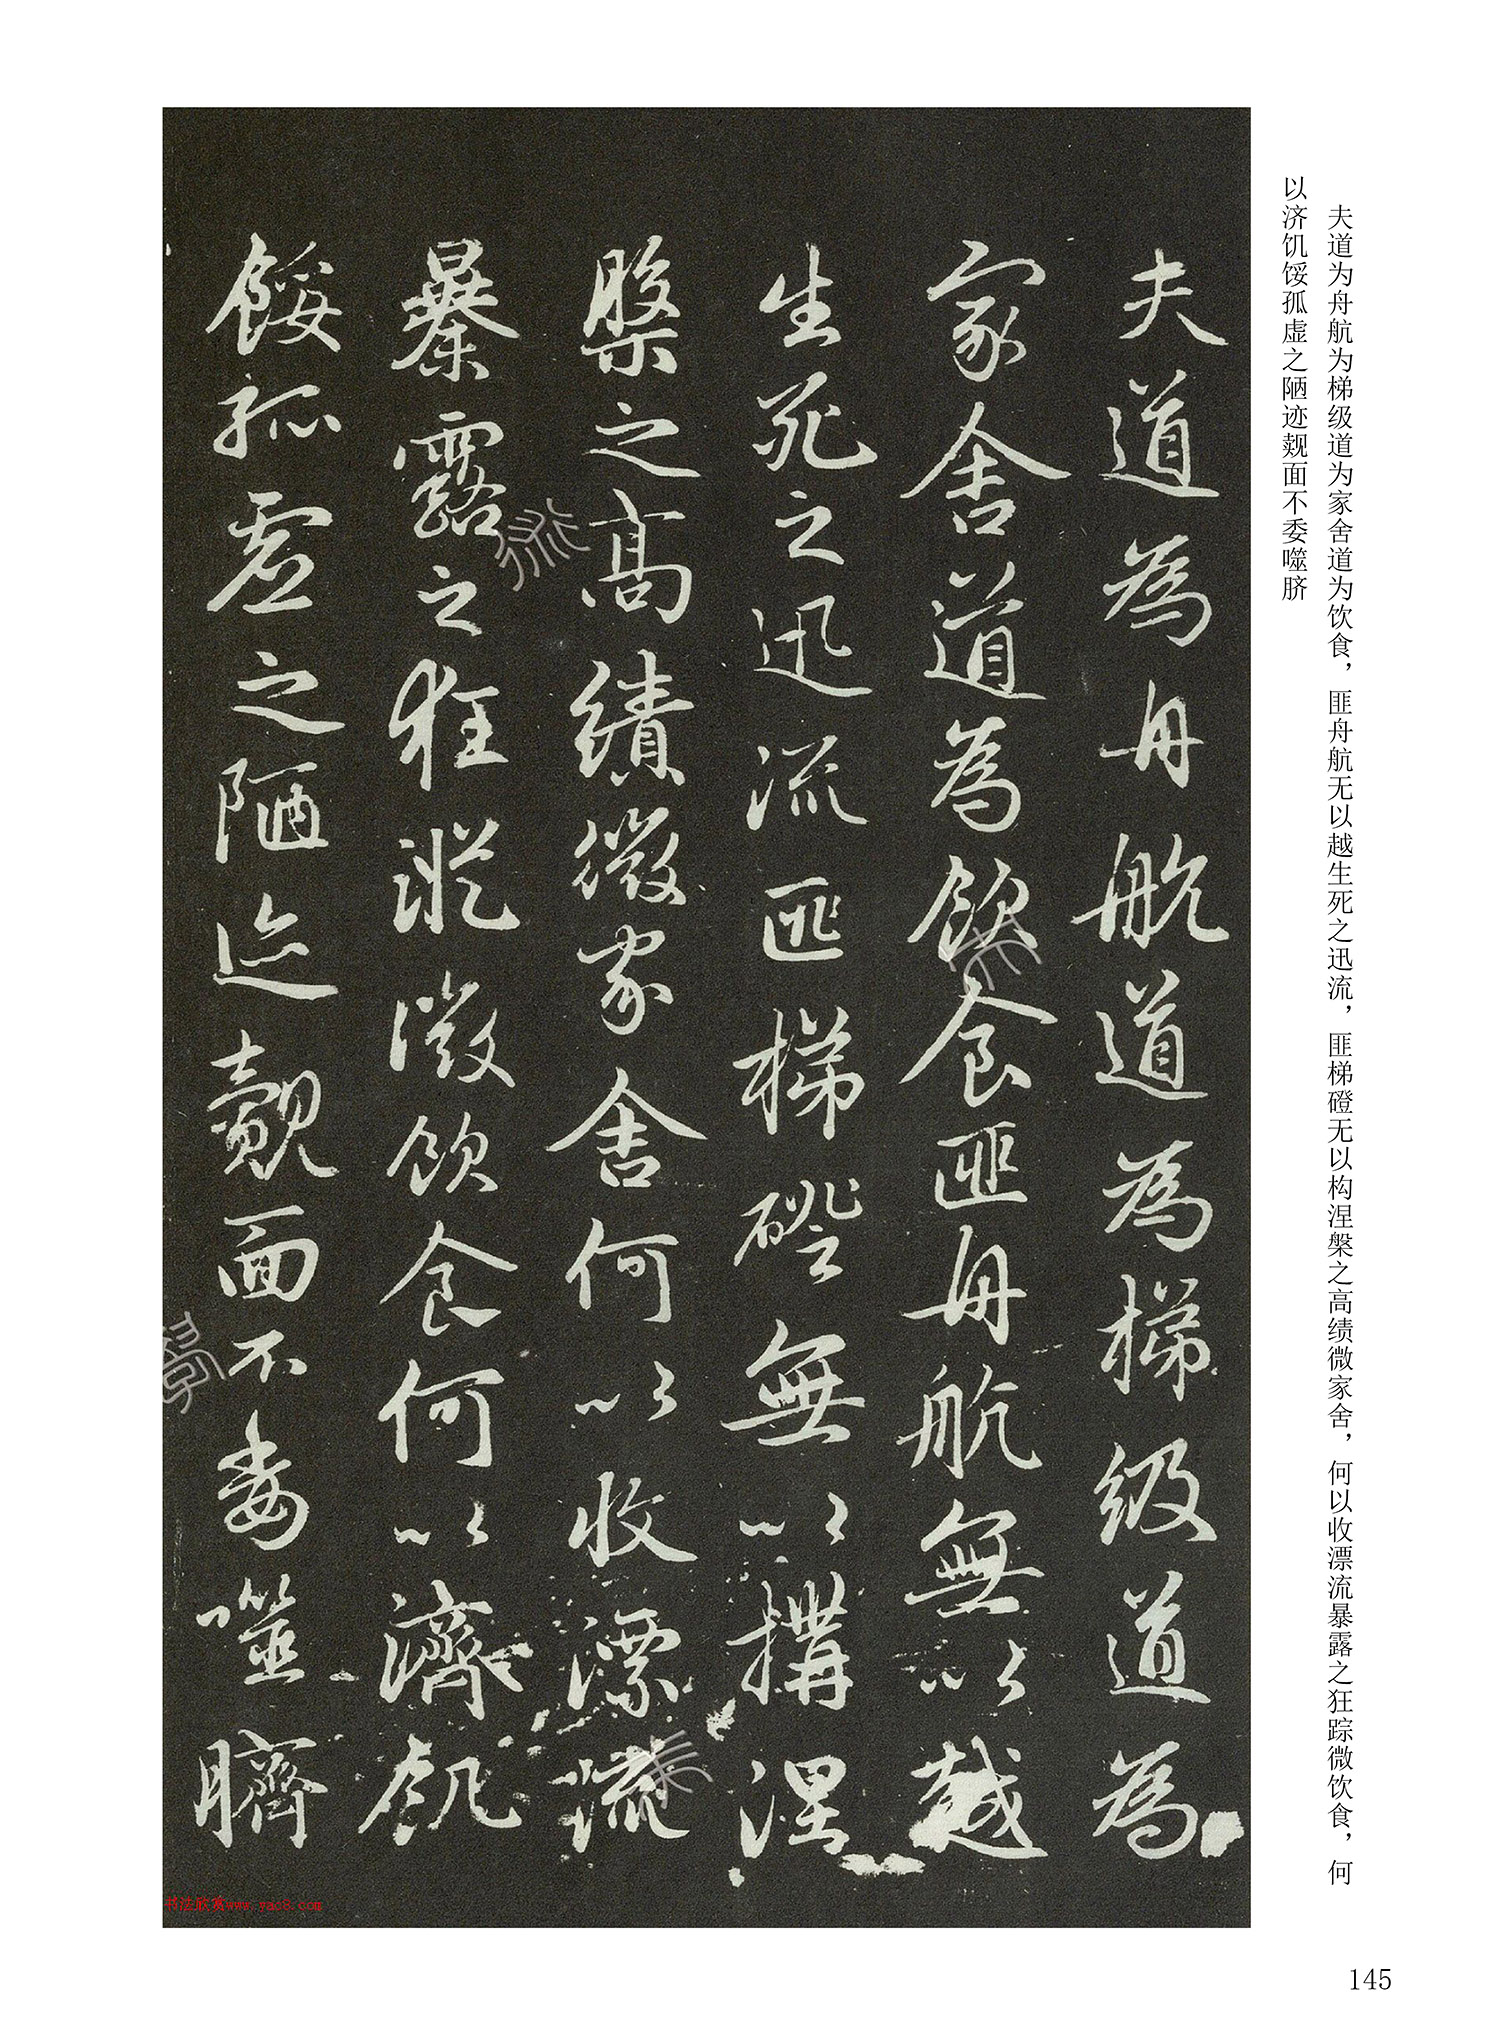 夫道为舟航为梯级道为家舍道为饮食，匪舟航无以越生死之迅流，匪梯磴无以构涅槃之高绩微家舍，何以收漂流暴露之狂踪微饮食，何
以济饥馁孤虚之陋迹觌面不委噬脐
夫道為舟航道為梯级道為
家舍道為飲食匪舟航無以越
生死之迅流匪梯磴無以構涅
槃之高績微家舍何以收漂流
暴露之狂蹤微飲食何以濟飢
餒孤虚之陋迹覿面不委噬臍
书法欣赏www.yac8.com
145